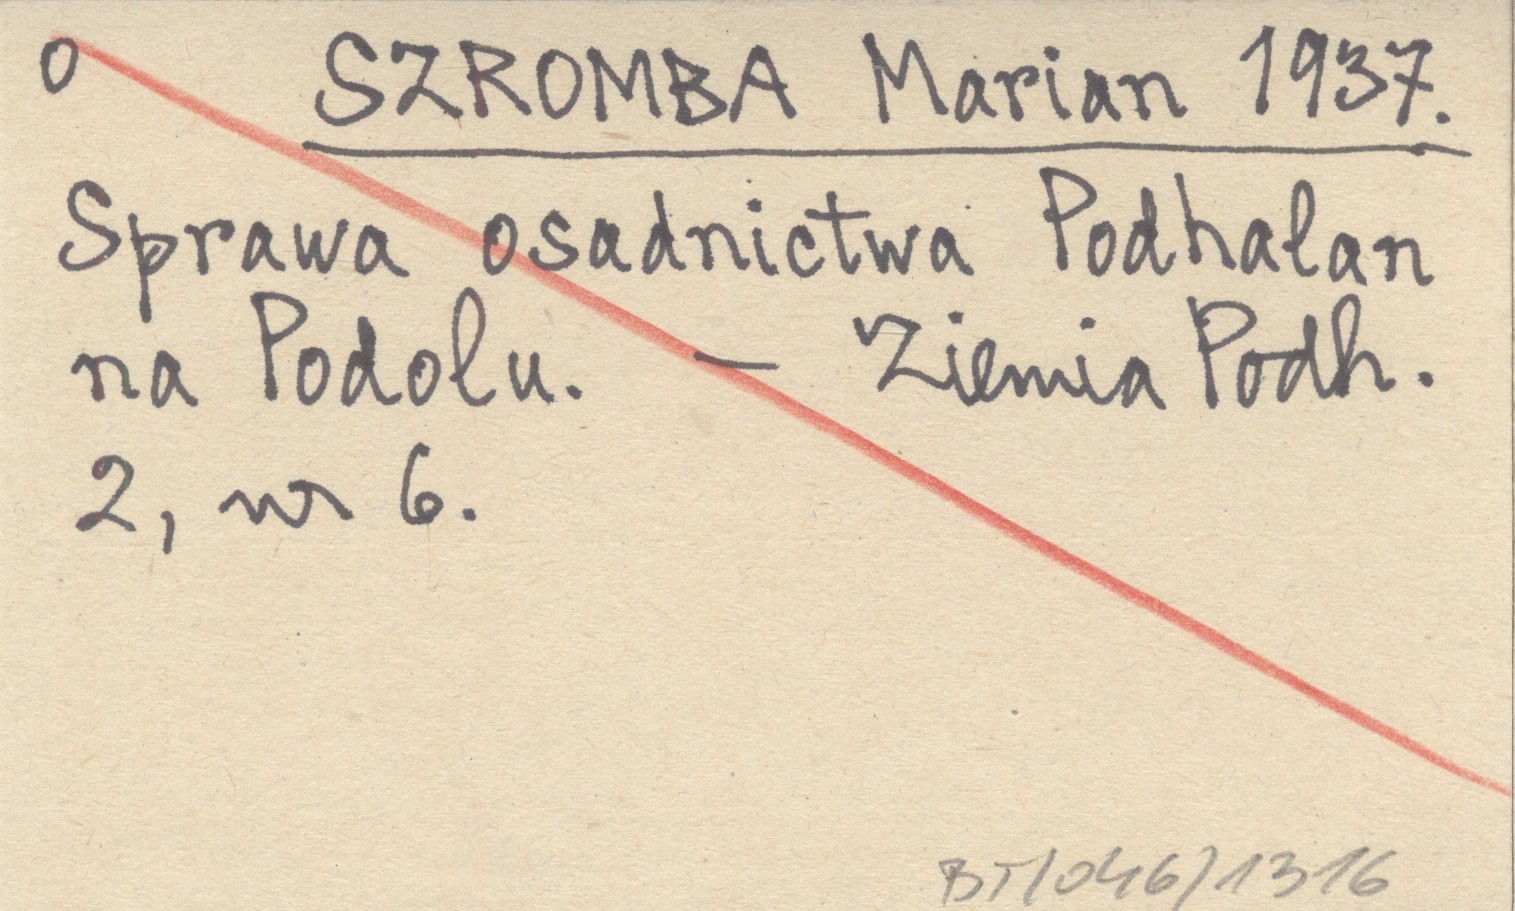 o SZROMBA Marian 1937.
Sprawa osadnictwa Podhalan
na Podolu. — Ziemia Podh.
2, nr 6.
BT/046/1316